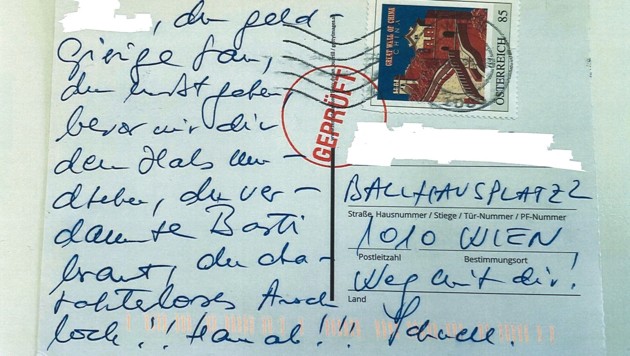 , du geld
gierige Sau,
du mußt gehen,
bevor wir dir
den Hals um-
drehen, du ver-
dammte Basti
braut, du cha-
rakterloses Arsch
loch!! Hau ab!!
GREAT WALL OF CHINA
CHINA
ÖSTERREICH 85
GEPRÜFT
BALLHAUSPLATZ 2
Straße, Hausnummer / Stiege / Tür-Nummer / PF-Nummer
1010 WIEN
Postleitzahl Bestimmungsort
Weg mit dir!
Land
Schnell!